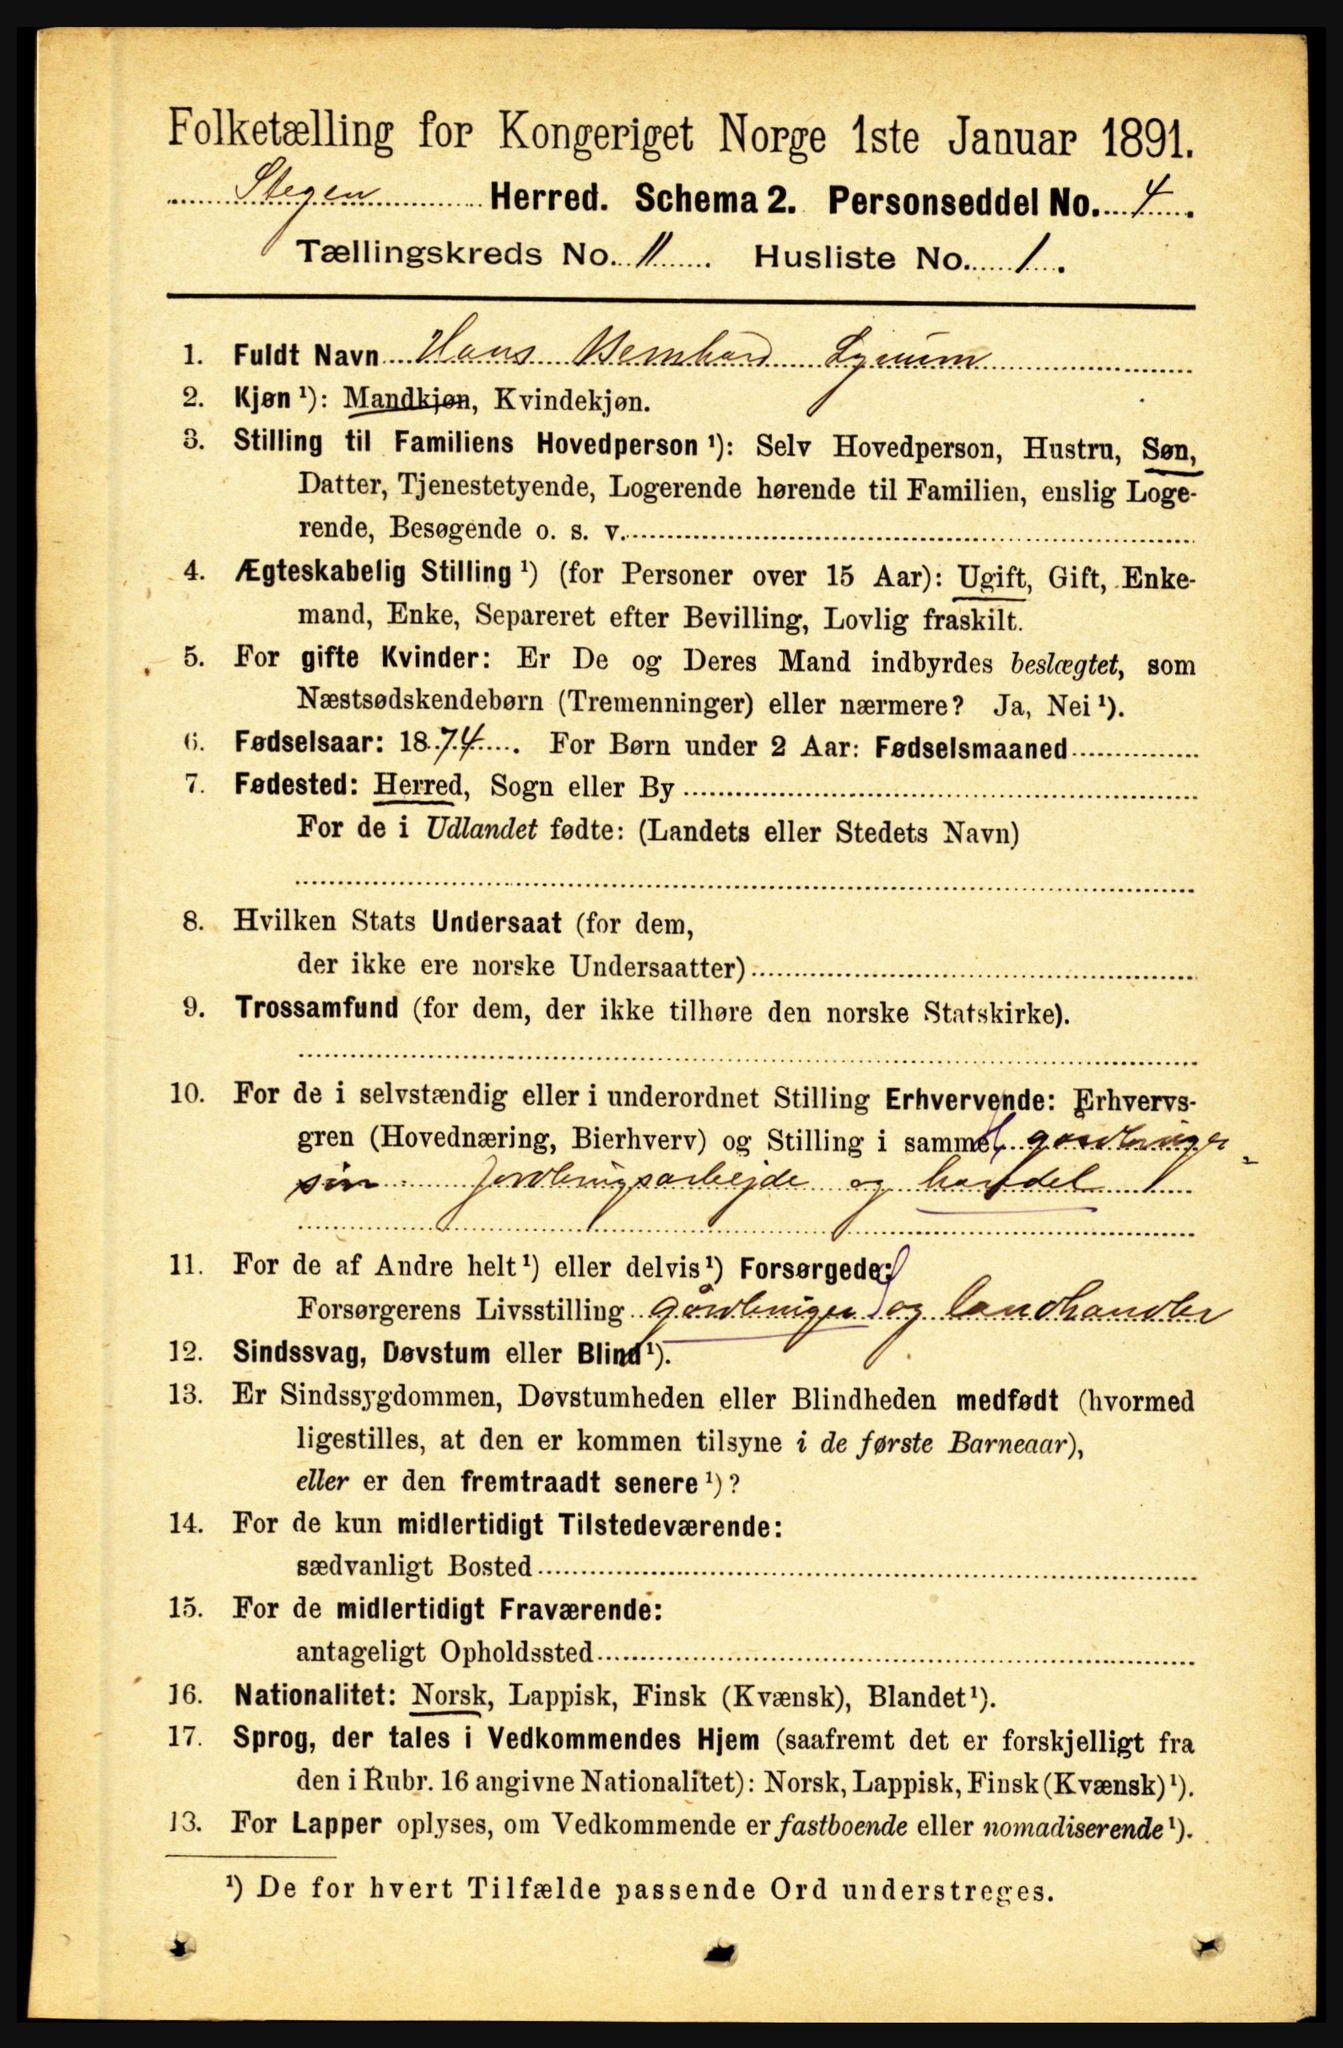 Folketælling for Kongeriget Norge 1ste Januar 1891.
Stegen Herred. Schema 2. Personseddel No. 4.
Tællingskreds No. 11. Husliste No. 1.
1. Fuldt Navn Hans Bernhard
2. Kjøn ¹): Mandkjøn, Kvindekjøn.
3. Stilling til Familiens Hovedperson ¹): Selv Hovedperson, Hustru, Søn,
Datter, Tjenestetyende, Logerende hørende til Familien, enslig Loge-
rende, Besøgende o. s. v.
4. Ægteskabelig Stilling ¹) (for Personer over 15 Aar): Ugift, Gift, Enke-
mand, Enke, Separeret efter Bevilling, Lovlig fraskilt.
5. For gifte Kvinder: Er De og Deres Mand indbyrdes beslægtet, som
Næstsødskendebørn (Tremenninger) eller nærmere? Ja, Nei ¹).
6. Fødselsaar: 1874. For Børn under 2 Aar: Fødselsmaaned
7. Fødested: Herred, Sogn eller By
For de i Udlandet fødte: (Landets eller Stedets Navn)
8. Hvilken Stats Undersaat (for dem,
der ikke ere norske Undersaatter)
9. Trossamfund (for dem, der ikke tilhøre den norske Statskirke).
10. For de i selvstændig eller i underordnet Stilling Erhvervende: Erhvervs-
gren (Hovednæring, Bierhverv) og Stilling i samme, gardbruger
søn jordbrugsarbejde og handel
11. For de af Andre helt ¹) eller delvis ¹) Forsørgede:
Forsørgerens Livsstilling gårdbruger og landhandler
12. Sindssvag, Døvstum eller Blind ¹).
13. Er Sindssygdommen, Døvstumheden eller Blindheden medfødt (hvormed
ligestilles, at den er kommen tilsyne i de første Barneaar),
eller er den fremtraadt senere ¹)?
14. For de kun midlertidigt Tilstedeværende:
sædvanligt Bosted
15. For de midlertidigt Fraværende:
antageligt Opholdssted
16. Nationalitet: Norsk, Lappisk, Finsk (Kvænsk), Blandet ¹).
17. Sprog, der tales i Vedkommendes Hjem (saafremt det er forskjelligt fra
den i Rubr. 16 angivne Nationalitet): Norsk, Lappisk, Finsk (Kvænsk) ¹).
13. For Lapper oplyses, om Vedkommende er fastboende eller nomadiserende ¹).
¹) De for hvert Tilfælde passende Ord understreges.